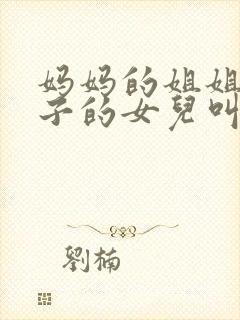 妈妈的姐姐
子的女兒叫
劉楠